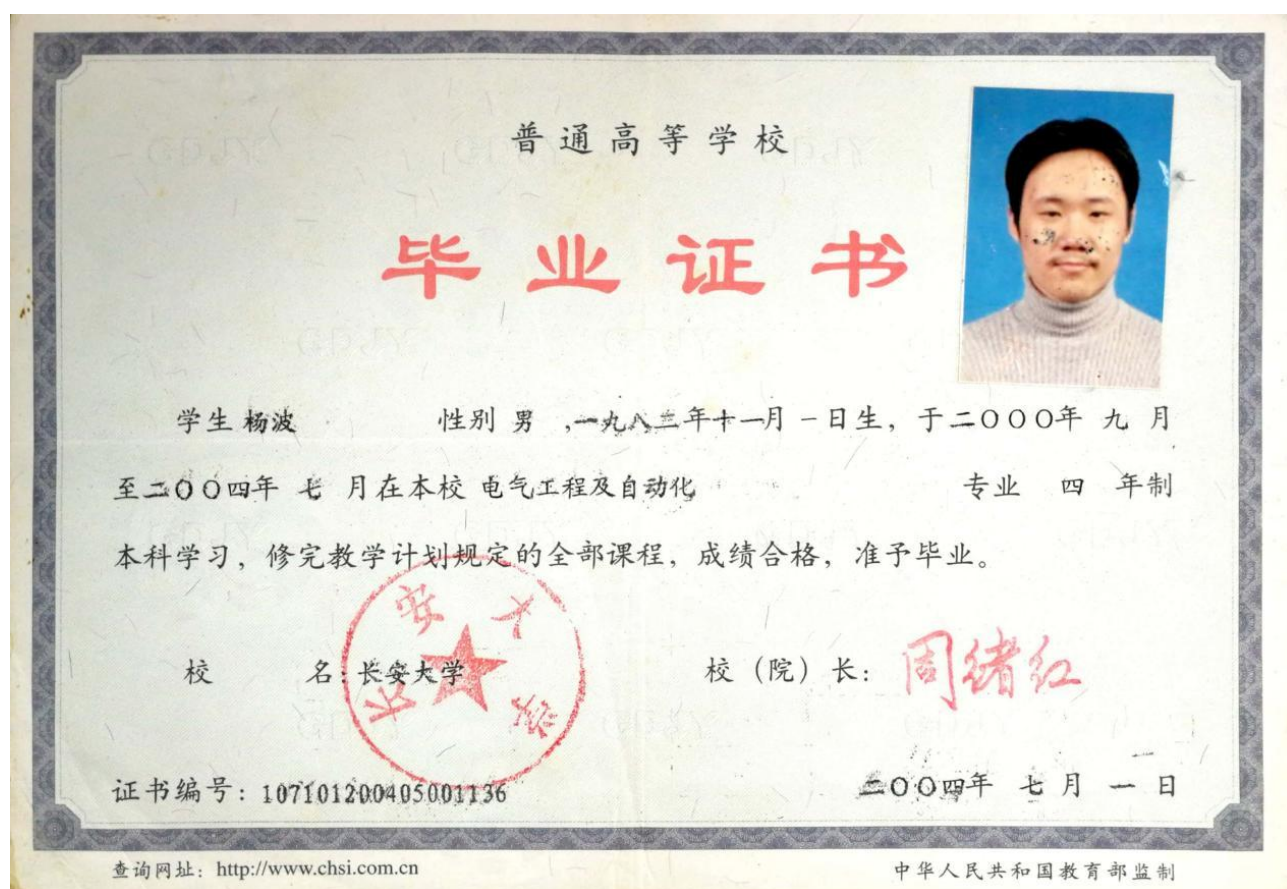 普通高等学校
毕业证书
学生 杨波 性别 男 ,一九八三年十一月一日生，于二〇〇〇年 九 月
至二〇〇四年 七 月在本校 电气工程及自动化 专业 四 年制
本科学习，修完教学计划规定的全部课程，成绩合格，准予毕业。
校 名：长安大学 校（院）长：周绪红
长安大学
证书编号：107101200405001136 二〇〇四年 七 月 一 日
查询网址：http://www.chsi.com.cn 中华人民共和国教育部监制